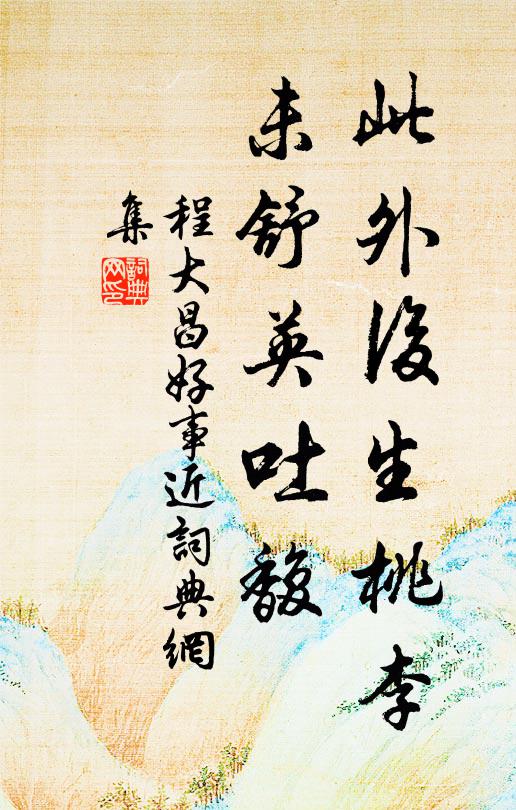 此外後生桃李
未舒英吐馥
程大昌好事近詞典網
集
詞典
网印